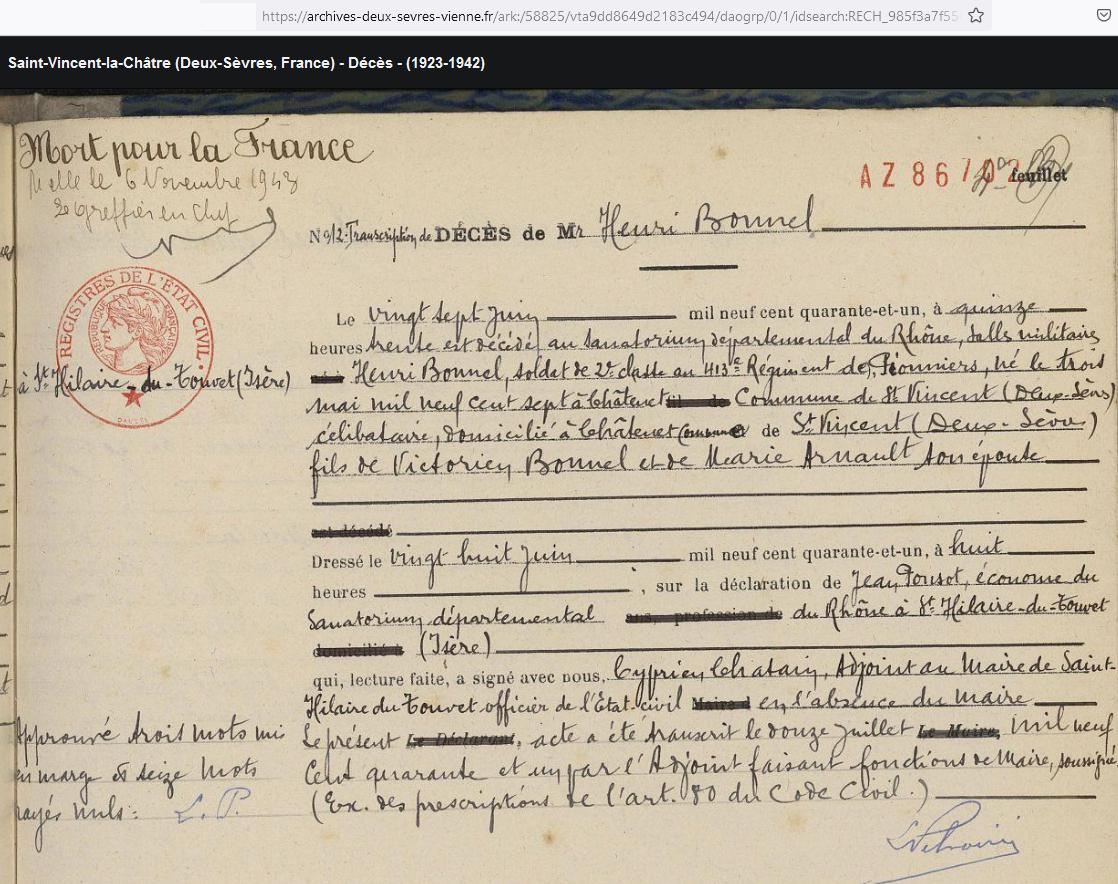 https://archives-deux-sevres-vienne.fr/ark:/58825/vta9dd8649d2183c494/daogrp/0/1/idsearch:RECH_985f3a7f55
Saint-Vincent-la-Châtre (Deux-Sèvres, France) - Décès - (1923-1942)
Mort pour la France
Melle le 6 Novembre 1943
Le Greffier en Chef
AZ 86702
feuillet
N° 12. Transcription de DÉCÈS de Mr Henri Bonnel
REGISTRES DE L'ETAT CIVIL
REPUBLIQUE FRANÇAISE
Le vingt sept Juin mil neuf cent quarante-et-un, à quinze
heures trente est décédé au Sanatorium départemental du Rhône, salles militaires
à St Hilaire-du-Touvet (Isère)
Henri Bonnel, soldat de 2e classe au 413e Régiment de Pionniers, né le trois
mai mil neuf cent sept à Châtenet Commune de St Vincent (Deux-Sèvres)
célibataire, domicilié à Châtenet Commune de St Vincent (Deux-Sèvres)
fils de Victorien Bonnel et de Marie Arnault son épouse
est décédé
Dressé le vingt huit Juin mil neuf cent quarante-et-un, à huit
heures , sur la déclaration de Jean Pousot, économe du
Sanatorium départemental ans, profession de du Rhône à St Hilaire-du-Touvet
domicilié à (Isère)
qui, lecture faite, a signé avec nous, Cyprien Chatain, Adjoint au Maire de Saint-
Hilaire du Touvet officier de l'Etat civil Maire d en l'absence du Maire
Le présent Le Déclarant, acte a été transcrit le douze Juillet Le Maire, mil neuf
cent quarante et un par l'Adjoint faisant fonctions de Maire, soussigné,
(Ex. des prescriptions de l'art. 80 du Code Civil.)
Approuvé trois mots mis
en marge et seize mots
rayés nuls :
L. P.